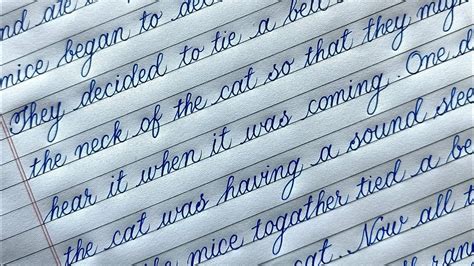 nd ate
mice began to de
They decided to tie a bell
the neck of the cat so that they migh
hear it when it was coming. One d
the cat was having a sound slee
mice togather tied a be
cat.. Now all t
ran